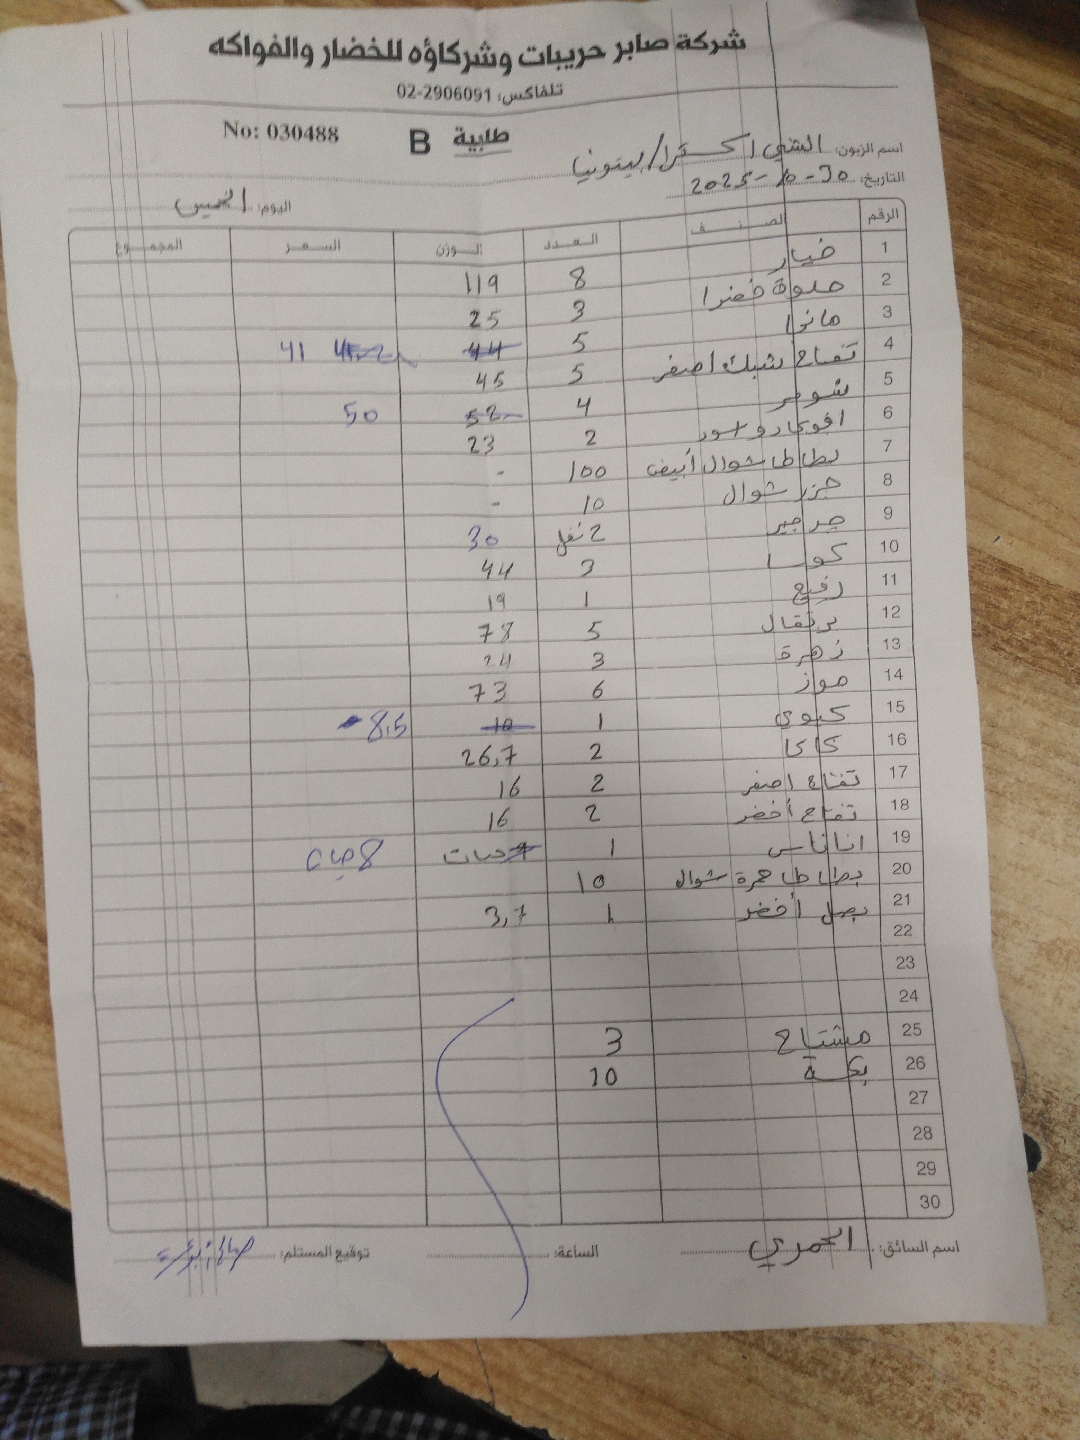 شركة صابر حريبات وشركاؤه للخضار والفواكه
تلفاكس: 02-2906091
No: 030488 B طلبية
اسم الزبون: الشني اكسترا/بيتونيا
التاريخ: 30-10-2025
اليوم: الخميس
الرقم الصنف العدد الوزن السعر المجموع
1 خيار 8 119
2 حلوة خضرا 3 25
3 مانجا 5 44 45.2 41
4 تفاح شبك اصفر 5 45
5 شومر 4 52 50
6 افوكادو اسود 2 23
7 بطاطا شوال أبيض 100 -
8 جزر شوال 10 -
9 جرجير 2 نفل 30
10 كوسا 3 44
11 رفيع 1 19
12 برتقال 5 78
13 زهرة 3 24
14 موز 6 73
15 كيوي 1 10 8,5
16 كاكا 2 26,7
17 تفاح اصفر 2 16
18 تفاح أخضر 2 16
19 اناناس 1 حبات 8 حبات
20 بطاطا حمرة شوال 10
21 بصل أخضر 1 3,7
22
23
24
25 مشتاح 3
26 بكسة 10
27
28
29
30
اسم السائق: الحمري الساعة: توقيع المستلم: